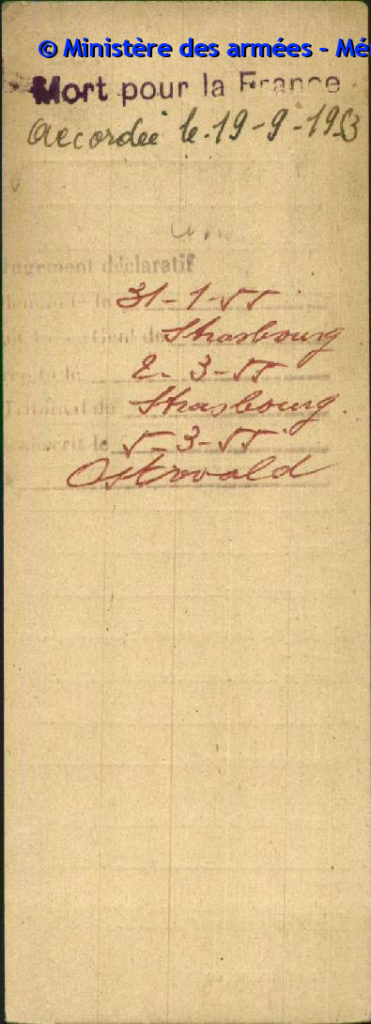 © Ministère des armées - Mé
Mort pour la France
accordée le 19-9-1953
Jugement déclaratif
31-1-55
Strasbourg
2-3-55
Tribunal de Strasbourg.
le 5-3-55
Ostwald